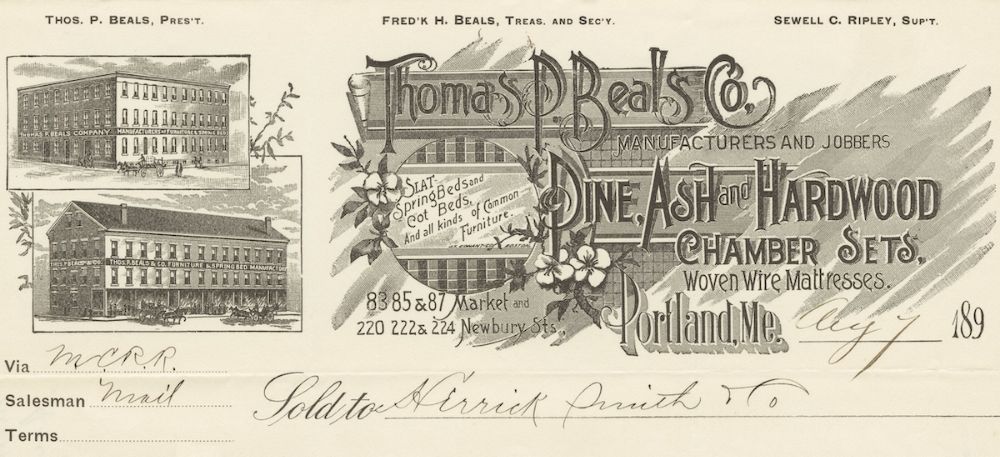 THOS. P. BEALS, PRES'T.
FRED'K H. BEALS, TREAS. AND SEC'Y.
SEWELL C. RIPLEY, SUP'T.
THOMAS P. BEALS COMPANY
MANUFACTURERS OF FURNITURE & SPRING BED
THOS. P. BEALS & CO. FURNITURE & SPRING BED MANUFACTORY
Thomas P. Beals Co.
MANUFACTURERS AND JOBBERS
PINE, ASH and HARDWOOD
CHAMBER SETS,
WOVEN WIRE MATTRESSES.
SLAT-
Spring Beds and
Cot Beds,
And all kinds of Common
Furniture.
83 85 & 87 Market and
220 222 & 224 Newbury Sts.,
Portland, Me. Aug 7 189
Via M.C.R.R.
Salesman Mail
Sold to Herrick Smith & Co
Terms